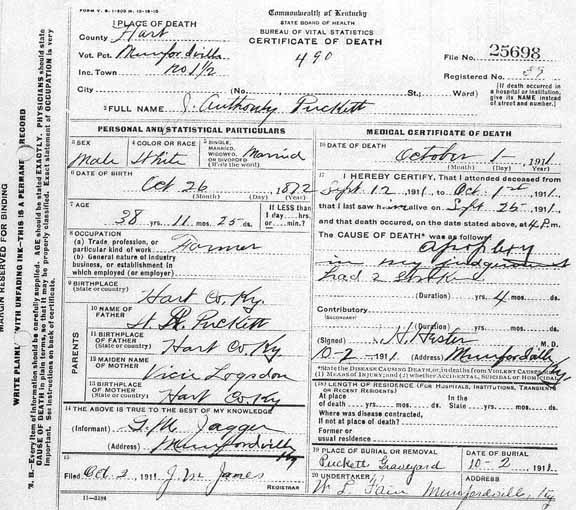 FORM V. S. 1-500 M. 12-18-10
Commonwealth of Kentucky
STATE BOARD OF HEALTH
BUREAU OF VITAL STATISTICS
CERTIFICATE OF DEATH
490
1 PLACE OF DEATH
County Hart
Vot. Pct. Munfordville
Inc. Town No 1 1/2
City (No. St.; Ward)
File No. 25698
Registered No. 39
[If death occurred in a hospital or institution, give its NAME instead of street and number.]
2 FULL NAME J. Anthony Puckett
PERSONAL AND STATISTICAL PARTICULARS
3 SEX Male
4 COLOR OR RACE White
5 SINGLE, MARRIED, WIDOWED, OR DIVORCED (Write the word) Married
6 DATE OF BIRTH
Oct 26 1872
(Month) (Day) (Year)
7 AGE
38 yrs. 11 mos. 25 ds.
If LESS than 1 day, hrs. or min.?
8 OCCUPATION
(a) Trade, profession, or particular kind of work Farmer
(b) General nature of industry business, or establishment in which employed (or employer)
9 BIRTHPLACE
(State or country) Hart Co. Ky.
PARENTS
10 NAME OF FATHER Puckett
11 BIRTHPLACE OF FATHER
(State or country) Hart Co. Ky
12 MAIDEN NAME OF MOTHER Vicie Logsdon
13 BIRTHPLACE OF MOTHER
(State or country) Hart Co Ky
14 THE ABOVE IS TRUE TO THE BEST OF MY KNOWLEDGE
(Informant) Jagger
(Address) Munfordville Ky
15
Filed Oct 2, 1911 J. W. Janes
REGISTRAR
11-3184
MEDICAL CERTIFICATE OF DEATH
16 DATE OF DEATH
October 1 1911
(Month) (Day) (Year)
17 I HEREBY CERTIFY, That I attended deceased from
Sept. 12, 1911, to Oct 1st, 1911,
that I last saw him alive on Sept. 25, 1911,
and that death occurred, on the date stated above, at 4 P.m.
The CAUSE OF DEATH* was as follows:
apoplexy
in my judgement
had 2 strokes
(Duration) yrs. 4 mos. ds.
Contributory
(SECONDARY)
(Duration) yrs. mos. ds.
(Signed) H. Hester M. D.
10-2, 1911 (Address) Munfordville Ky.
*State the DISEASE CAUSING DEATH, or, in deaths from VIOLENT CAUSES, state (1) MEANS OF INJURY; and (2) whether ACCIDENTAL, SUICIDAL or HOMICIDAL
18 LENGTH OF RESIDENCE (FOR HOSPITALS, INSTITUTIONS, TRANSIENTS OR RECENT RESIDENTS)
At place of death yrs. mos. ds. In the State yrs. mos. ds.
Where was disease contracted, if not at place of death?
Former or usual residence
19 PLACE OF BURIAL OR REMOVAL
Puckett Graveyard
DATE OF BURIAL
10-2, 1911
20 UNDERTAKER
W L Fain
ADDRESS
Munfordville, Ky
MARGIN RESERVED FOR BINDING
WRITE PLAINLY, WITH UNFADING INK—THIS IS A PERMANENT RECORD
N. B.—Every item of information should be carefully supplied. AGE should be stated EXACTLY. PHYSICIANS should state CAUSE OF DEATH in plain terms, so that it may be properly classified. Exact statement of OCCUPATION is very important. See instructions on back of certificate.